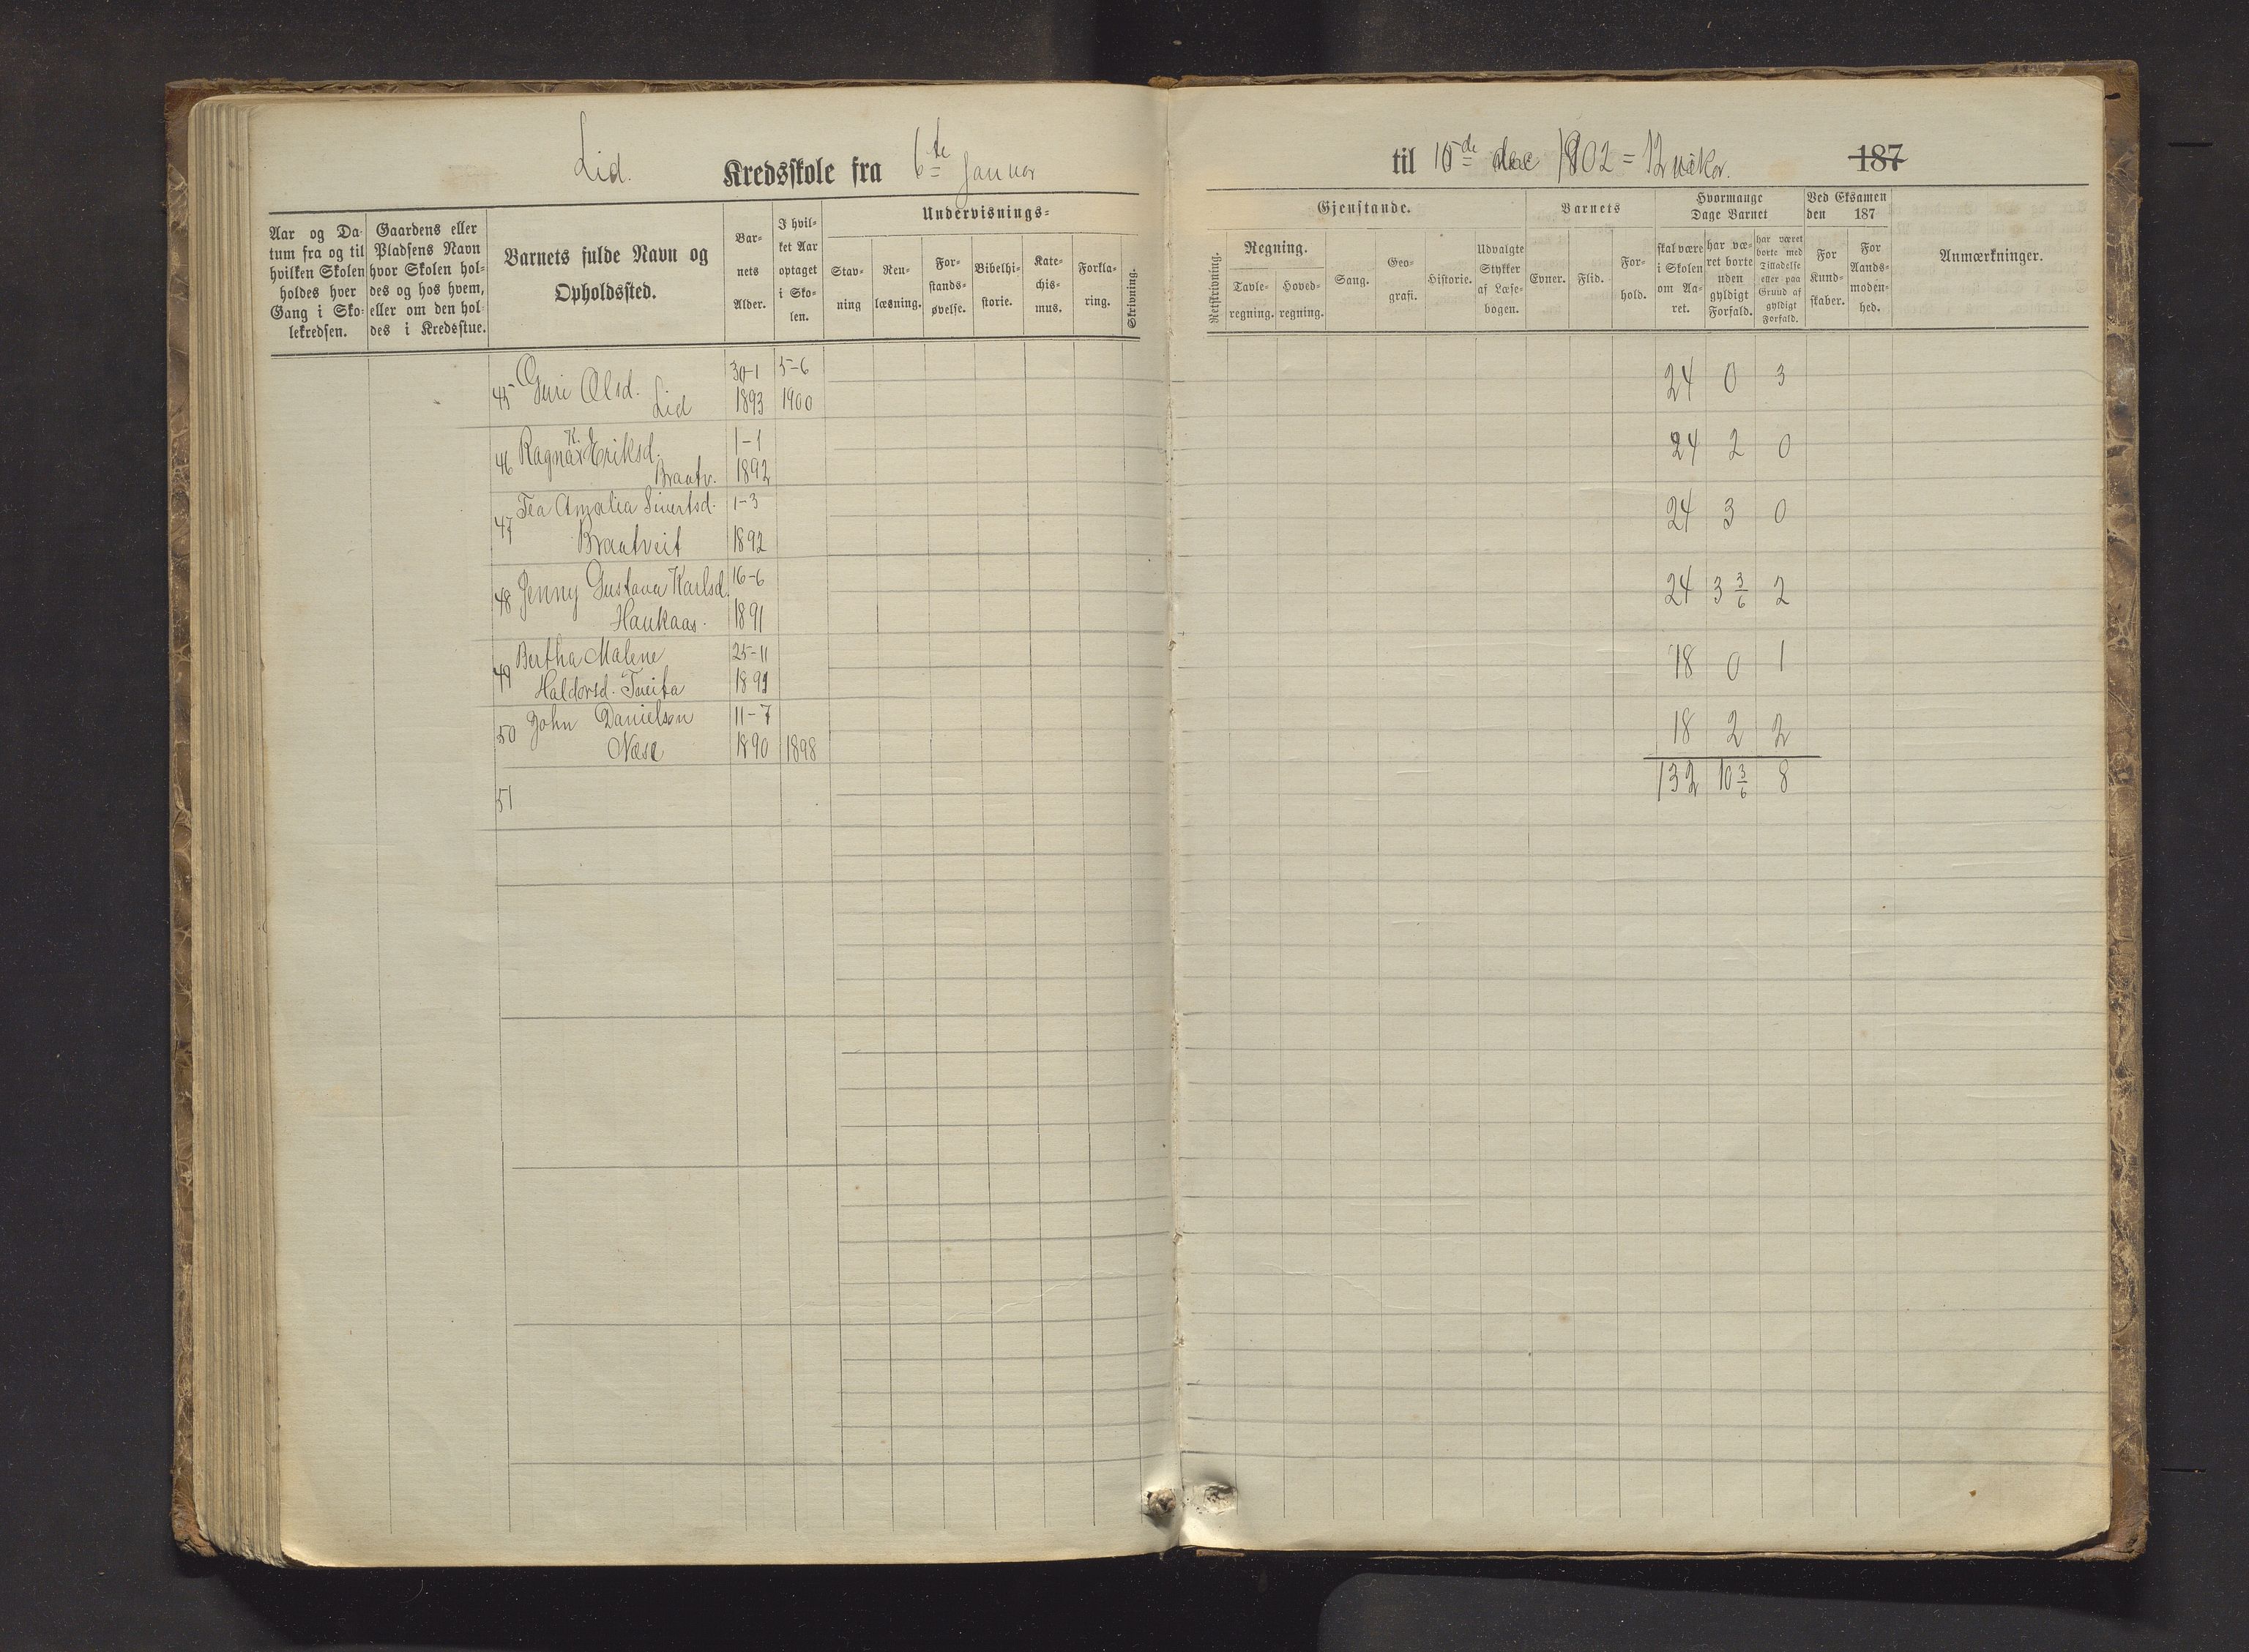 Lid. Kredsskole fra 6te Januar
til 15de dec 1902 = 12 uker. 187
Aar og Da-
tum fra og til
hvilken Skolen
holdes hver
Gang i Sko-
lekredsen.
Gaardens eller
Pladsens Navn
hvor Skolen hol-
des og hos hvem,
eller om den hol-
des i Kredsstue.
Barnets fulde Navn og
Opholdssted.
Bar-
nets
Alder.
I hvil-
ket Aar
optaget
i Sko-
len.
Undervisnings-
Stav-
ning
Ren-
læsning.
For-
stands-
øvelse.
Bibelhi-
storie.
Kate-
chis-
mus.
Forkla-
ring.
Skrivning.
Gjenstande.
Retskrivning.
Regning.
Tavle-
regning.
Hoved-
regning.
Sang.
Geo-
grafi.
Historie.
Udvalgte
Stykker
af Læse-
bogen.
Barnets
Evner.
Flid.
For-
hold.
Hvormange
Dage Barnet
skal være
i Skolen
om Aa-
ret.
har væ-
ret borte
uden
gyldigt
Forfald.
har været
borte med
Tilladelse
eller paa
Grund af
gyldigt
Forfald.
Ved Eksamen
den 187
For
Kund-
skaber.
For
Aands-
moden-
hed.
Anmærkninger.
45 Guri Olsd. 30-1 5-6 24 0 3
Lid 1893 1900
46 Ragna K. Eriksd. 1-1 24 2 0
Braatv. 1892
47 Tea Amalia Sivertsd. 1-3 24 3 0
Braatveit 1892
48 Jenny Gustava Karlsd. 16-6 24 3 3/6 2
Haukaas. 1891
49 Bertha Malene 25-11 18 0 1
Haldorsd. Tveita 1891
50 John Danielsen 11-7 18 2 2
Næse 1890 1898
132 10 3/6 8
51